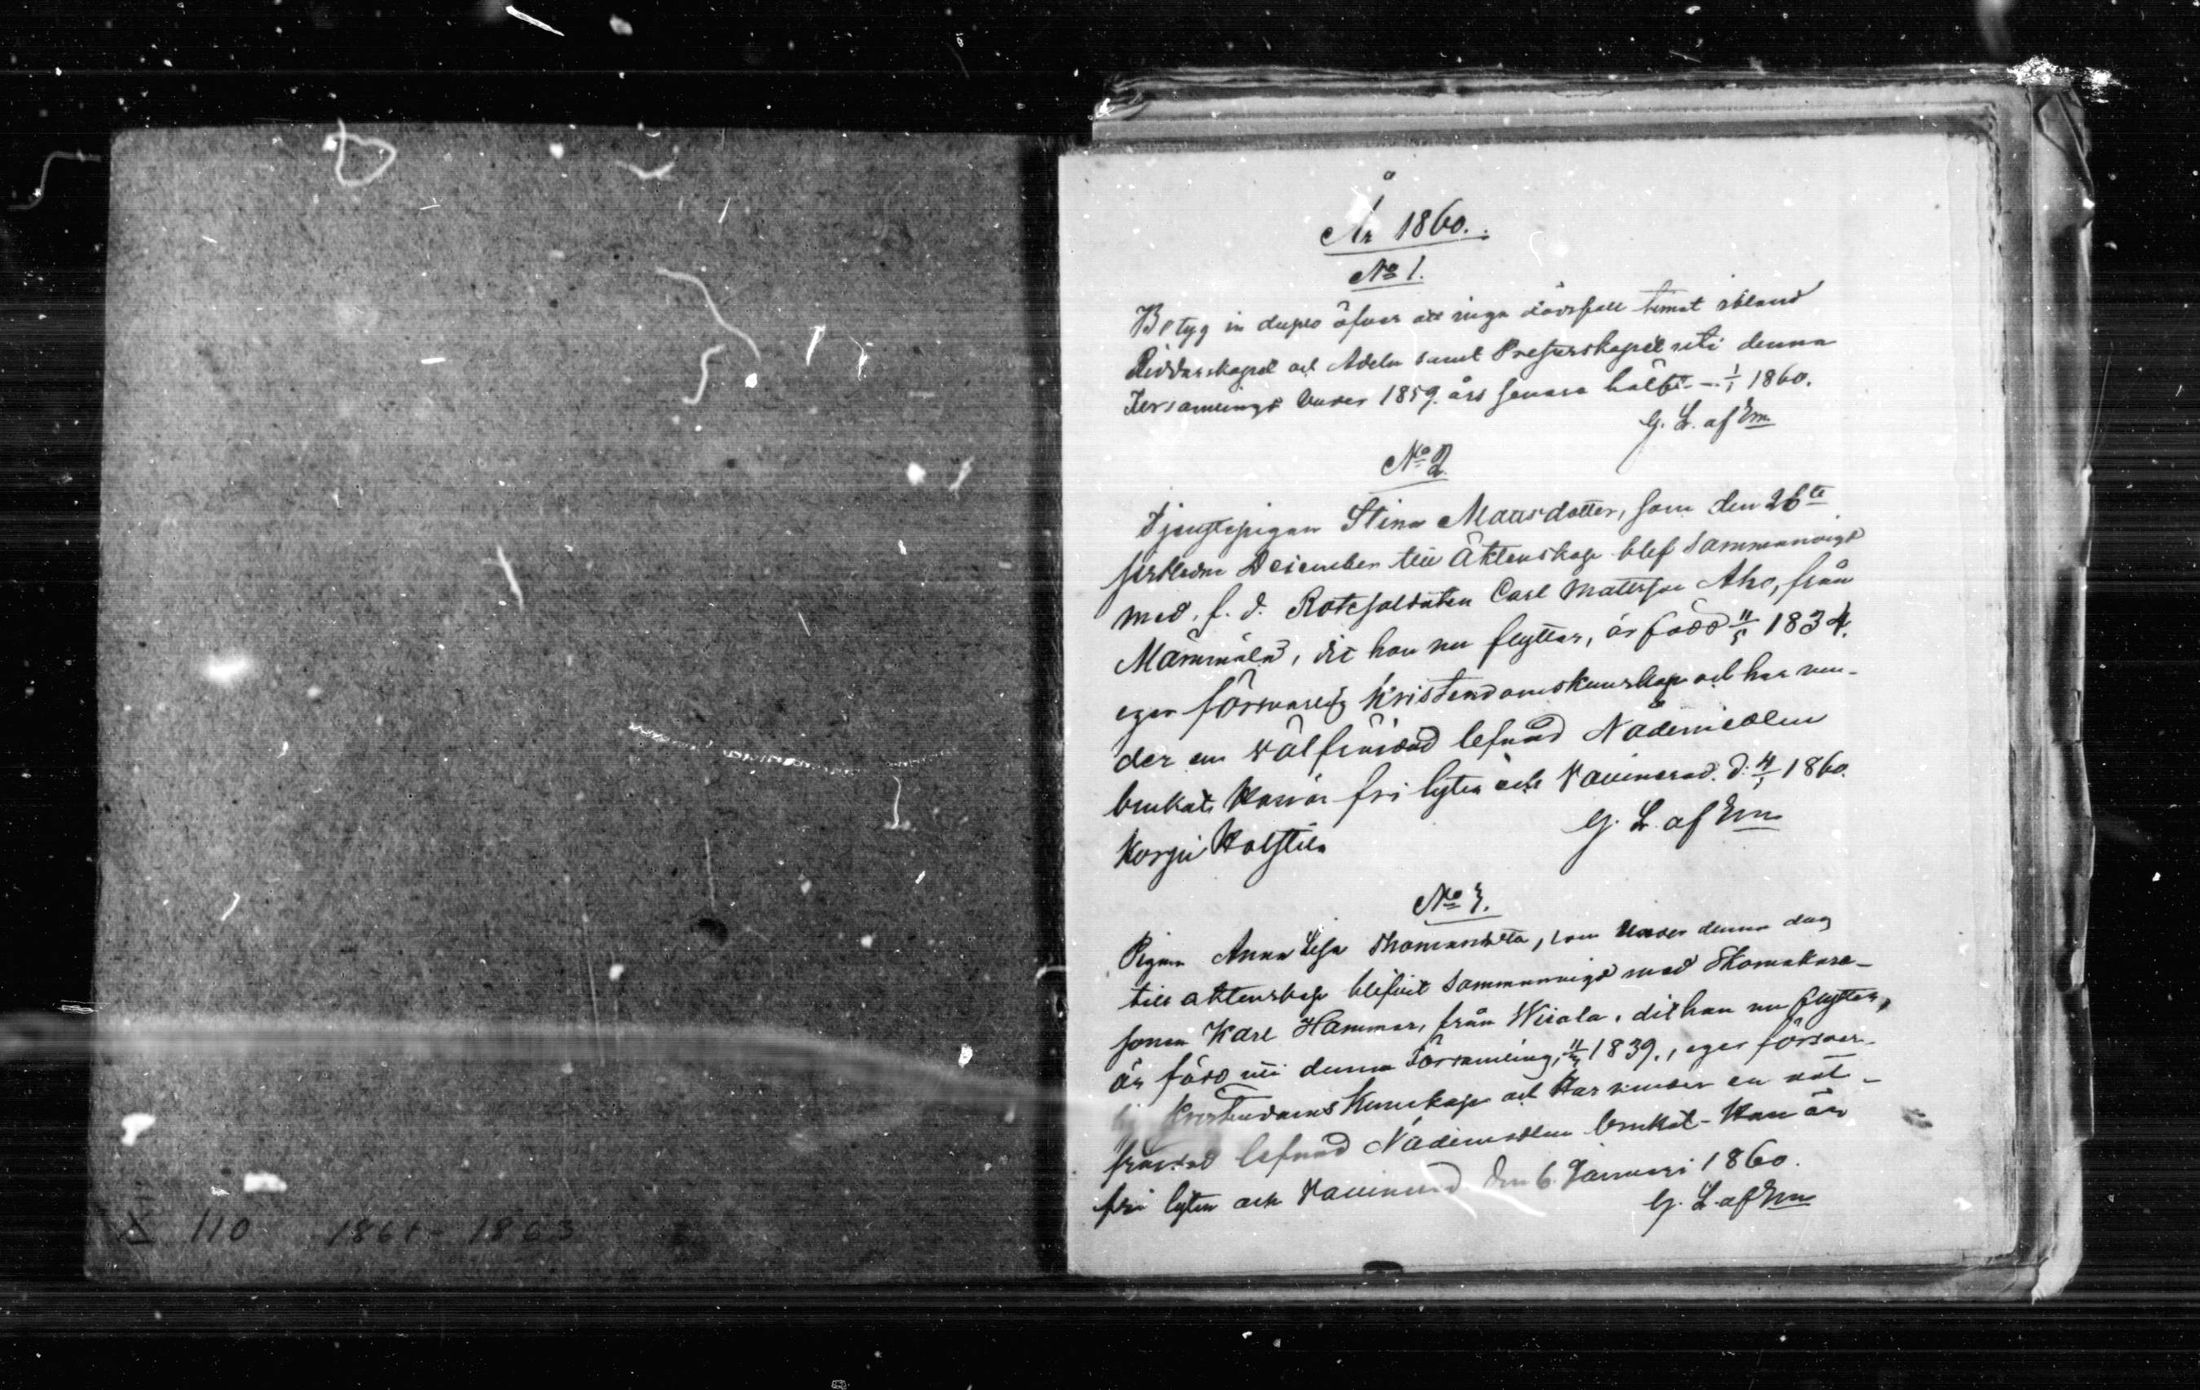 År 1860.
No 1.
Betyg in duplo öfver att inga dödsfall timat ibland
Ridderskapet och Adeln samt Presterskapet uti denna
Församlings under 1859 års senare hälft – 1/1 1860.
G. L. af Em
No 2
Tjenstepigan Stina Matsdotter, som den 26te
sistledne December till Äktenskap blef sammanvigd
med f. d. Rotesoldaten Carl Mattsson Aho, från
Mämmälä, dit hon nu flyttar, är född 11/5 1834.
eger försvarlig Kristendomskunskap och har un-
der en välfrejdad lefnad Nådemedlen
brukat. Hon är fri lyten och Vaccinerad. d. 4/1 1860.
G. L. af Em
Korpi Kolstila
No 3.
Pigan Anna Lisa Thomasdotter, som under denna dag
till äktenskap blifvit sammanvigd med Skomakare-
sonen Karl Hammar, från Wirala, dit hon nu flyttar,
är född uti denna Församling, 1839., eger försvar-
lig Kristendoms Kunskap och har under en väl-
frejdad lefnad Nådemedlen brukat. Hon är
fri lyten och Vaccinerad den 6 Januari 1860.
G. L. af Em
110 1861-1863